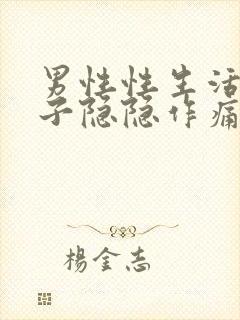 男性性生活
子隐隐作痛
楊金志